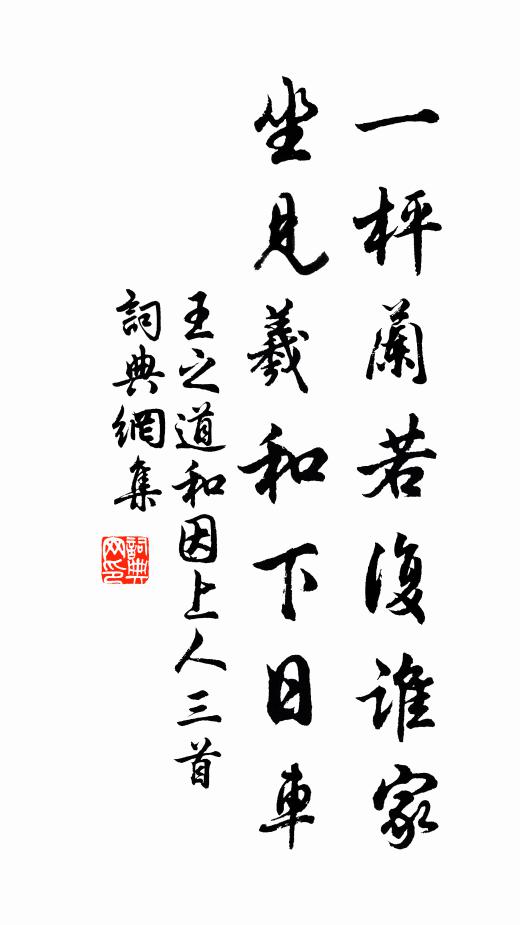 一枰蘭若復誰家
坐見羲和下日車
王之道和因上人三首
詞典網集
詞典網印